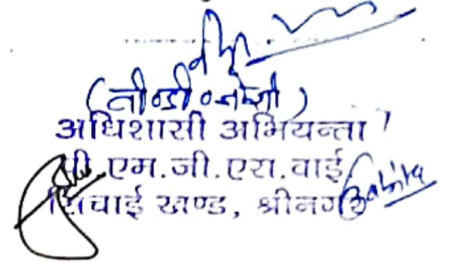 अधिशासी अभियन्ता
पी.एम.जी.एस.वाई
सिंचाई खण्ड, श्रीनगर
Babita